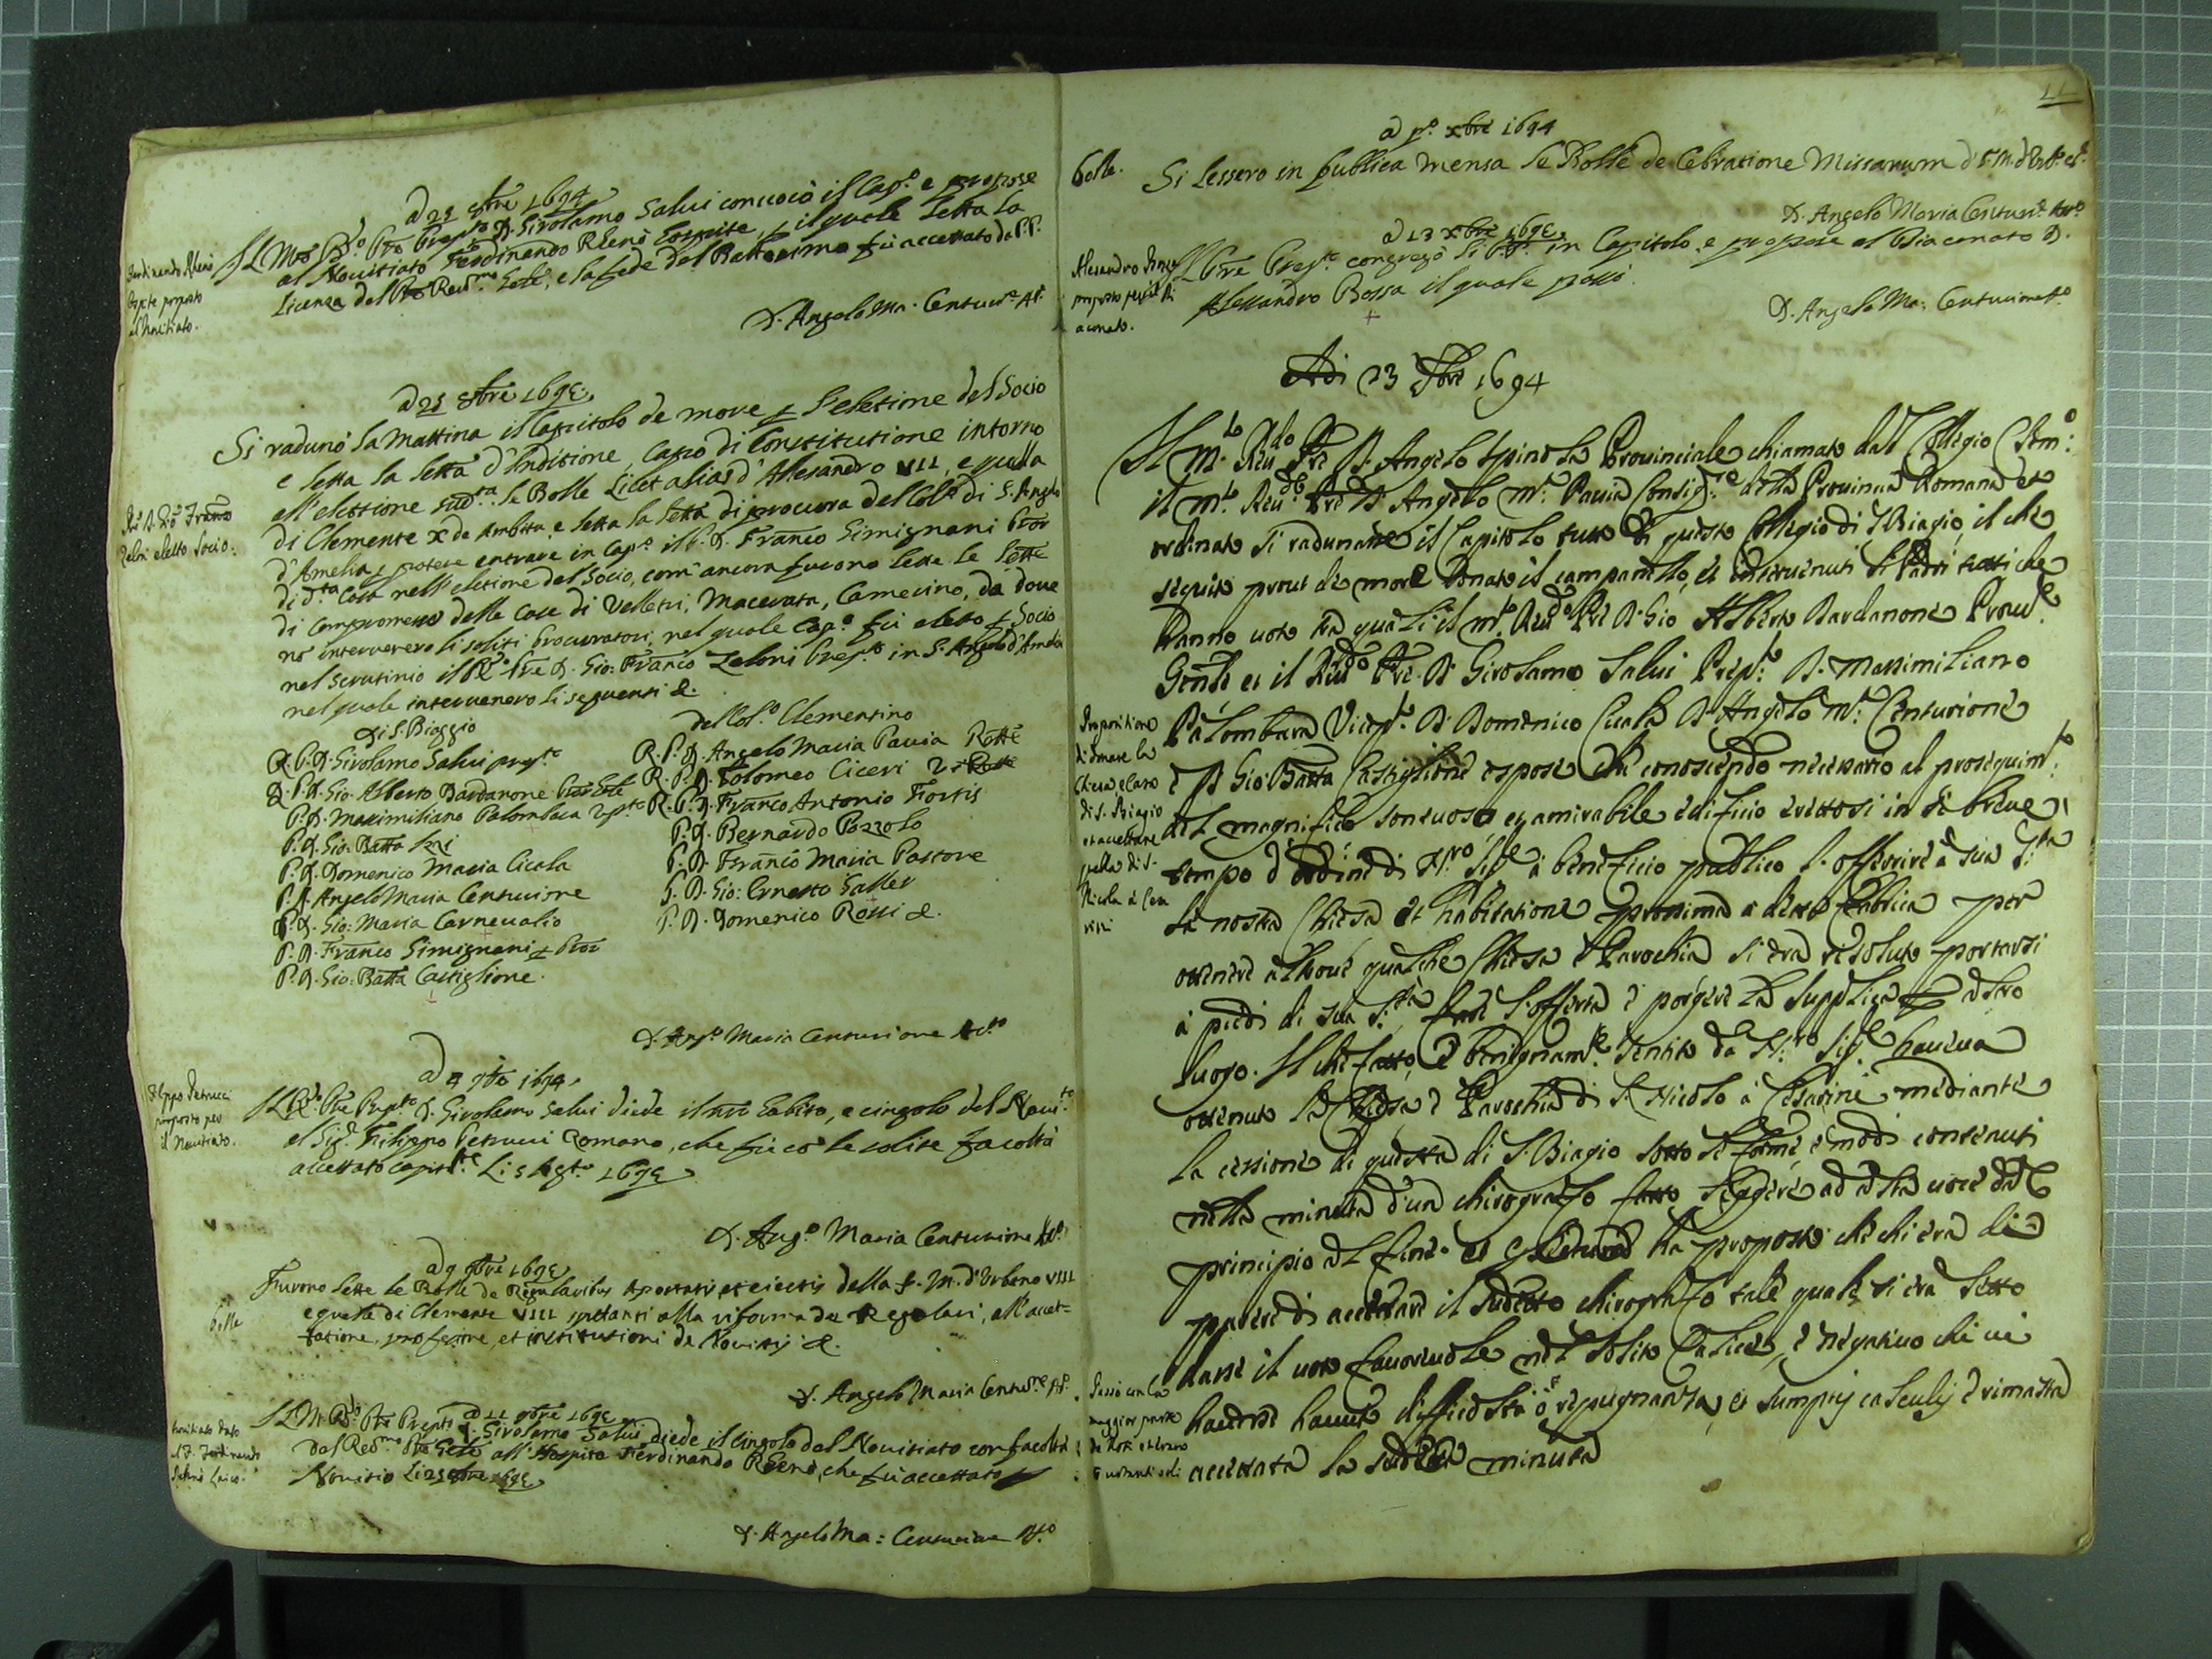 a 21 8bre 1694
Il M.to R.do Pre Prep.to D. Girolamo Salui conuocò il Cap.o e propose
al Nouitiato Ferdinando Rhenò Hospite, il quale letta la
Licenza del Reu.mo Gnle, e la fede del Battesimo fù accettato da P.P.
D. Angelo Ma. Centurne At.
Ferdinando Rhenò
Ospite proposto
al Nouitiato.
a 25 8bre 1694
Si radunò la mattina il Capitolo de more p l'eletione del Socio
e letta la lettã d'Inditione, Capo di Constitutione intorno
all'elettione sud.ta le Bolle Licet alias d'Alesandro VII, e quella
di Clemente X de Ambitu, e letta la letta di procura del Col.o di S. Angelo
d'Amelia p potere entrare in Cap.o il P. D. Franco Gimignani Pror
di d.ta Casa nell'eletione del Socio, com'ancora furono lette le lette
di Compromesso delle Case di Velletri, Macerata, Camerino, da doue
nõ interuenero li soliti Procuratori, nel quale Cap.o fù eletto p Socio
nel scrutinio il Pre D. Gio: Franco Zeloni Prep.to in S. Angelo d'Amelia
nel quale interuenero li seguenti &.
D. Gio Franco
Zeloni eletto Socio.
Di S. Biaggio
R. P. D. Girolamo Salui prep.to
R. P. D. Gio. Alberto Bardanone Pror Gnle
P. D. Massimiliano Palombara Vp.to
P. D. Gio: Batta
P. D. Domenico Maria Cicala
P. D. Angelo Maria Centurione
P. D. Gio: Maria Carneualio
P. D. Franco Gimignani p Pror
P. D. Gio: Batta Castiglione.
del Col.o Clementino
R. P. D. Angelo Maria Pauia Rotte
R. P. D. Tolomeo Ciceri
R. P. D. Franco Antonio Fortis
P. D. Bernardo Pozzolo
P. D. Franco Maria Pastore
P. D. Gio: Ernesto Galler
P. D. Domenico Rossi &.
D. Ang.o Maria Centurione Att.o
a 4 9bre 1694
Il R.do Pre Prep.to D. Girolamo Salui diede il nro habito, e cingolo del Noui.to
al Sig.r Filippo Petrucci Romano, che fù cõ le solite facoltà
accettato Li 5 Ag.to 1694
Filippo Petrucci
proposto per
il Nouitiato.
D. Ang.o Maria Centurione Att.o
a 9 9bre 1694
Furono lette le Bolle de Regularibus Apostatis et eiectis della f. M. d'Urbano VIII
e quella di Clemente VIII spettanti alla riforma de Regolari, all'accet-
tatione, professione, et institutioni de Nouitij &.
bolle
D. Angelo Maria Centurne At.
a 11 9bre 1694
Il M. R.do Pre Prep.to D. Girolamo Salui diede il cingolo del Nouitiato con facoltà
dal Reu.mo Pre Gnle all'Hospite Ferdinando Rhenò, che fù accettato
Nouitio Li 21 8bre 1694
Nouitiato dato
al F. Ferdinando
Laico.
D. Angelo Ma: Centurione Att.o
11
a p.o xbre 1694
bolle.
Si lessero in publica mensa le Bolle de Celebratione Missarum
D. Angelo Maria Centurne Att.o
a 13 xbre 1694
Il Pre Prep.to congregò li P.P. in Capitolo, e propose al Diaconato D.
Alessandro Bossa il quale passò.
Alesandro
proposto per il Di
aconato.
D. Angelo Ma: Centurione Att.o
Adi 23 Xbre 1694
Il m.to Reu.do Pre D. Angelo Spinola Prouinciale chiamato dal Collegio Clem.o:
il m.to Reu.do Pre D. Angelo M.a Pauia Consig.re della Prouincia Romana et
ordinato si radunasse il Capitolo tutto di questo Collegio di S. Biagio, il che
seguito prout de more sonato il campanello, et interuenuti li Padri tutti che
hanno uoto trà quali il m.to Reu.do Pre D. Gio Alberto Bardanone Procu.re
Gen.le et il Reu.do Pre D. Girolamo Salui Prep.to D. Massimiliano
Palombara Vicep.to D. Domenico Cicala D. Angelo M.a Centurione
e D. Gio: Batta Castiglione espose che conoscendo necessario al proseguim.to
del magnifico sontuoso et amirabile edificio erettosi in sì breue
tempo d'ordine di N.ro Sig.re à beneficio publico l'offerire à sua S.ta
la nostra Chiesa et habitatione prossima à detta fabrica per
ottenere altroue qualche Chiesa e Parochia si era risoluto portarsi
à piedi di sua S.tà fare l'offerta e porgere la supplica
luogo. Il che fatto, e benignam.te sentito da N.ro Sig.re haueua
ottenuto la Chiesa e Parochia di S. Nicolo à Cesarini mediante
la cessione di questa di S. Biagio sotto le forme e modi contenuti
nella minuta d'un chirografo fatto leggere ad alta uoce dal
principio al fine. et hà proposto che chi era di
parere di accettare il sudetto chirografo tale quale si era letto
darse il uoto fauoreuole nel solito Calice, e negatiuo chi ui
hauesse hauuto difficoltà ò repugnanza, et sumptis calculis è rimasta
accettata la sudetta minuta
Propositione
di dimare la
Chiesa, e Casa
di S. Biagio
et accettare
quella di S.
Nicola à Cesa
rini
Passò con la
maggior parte
de Voti